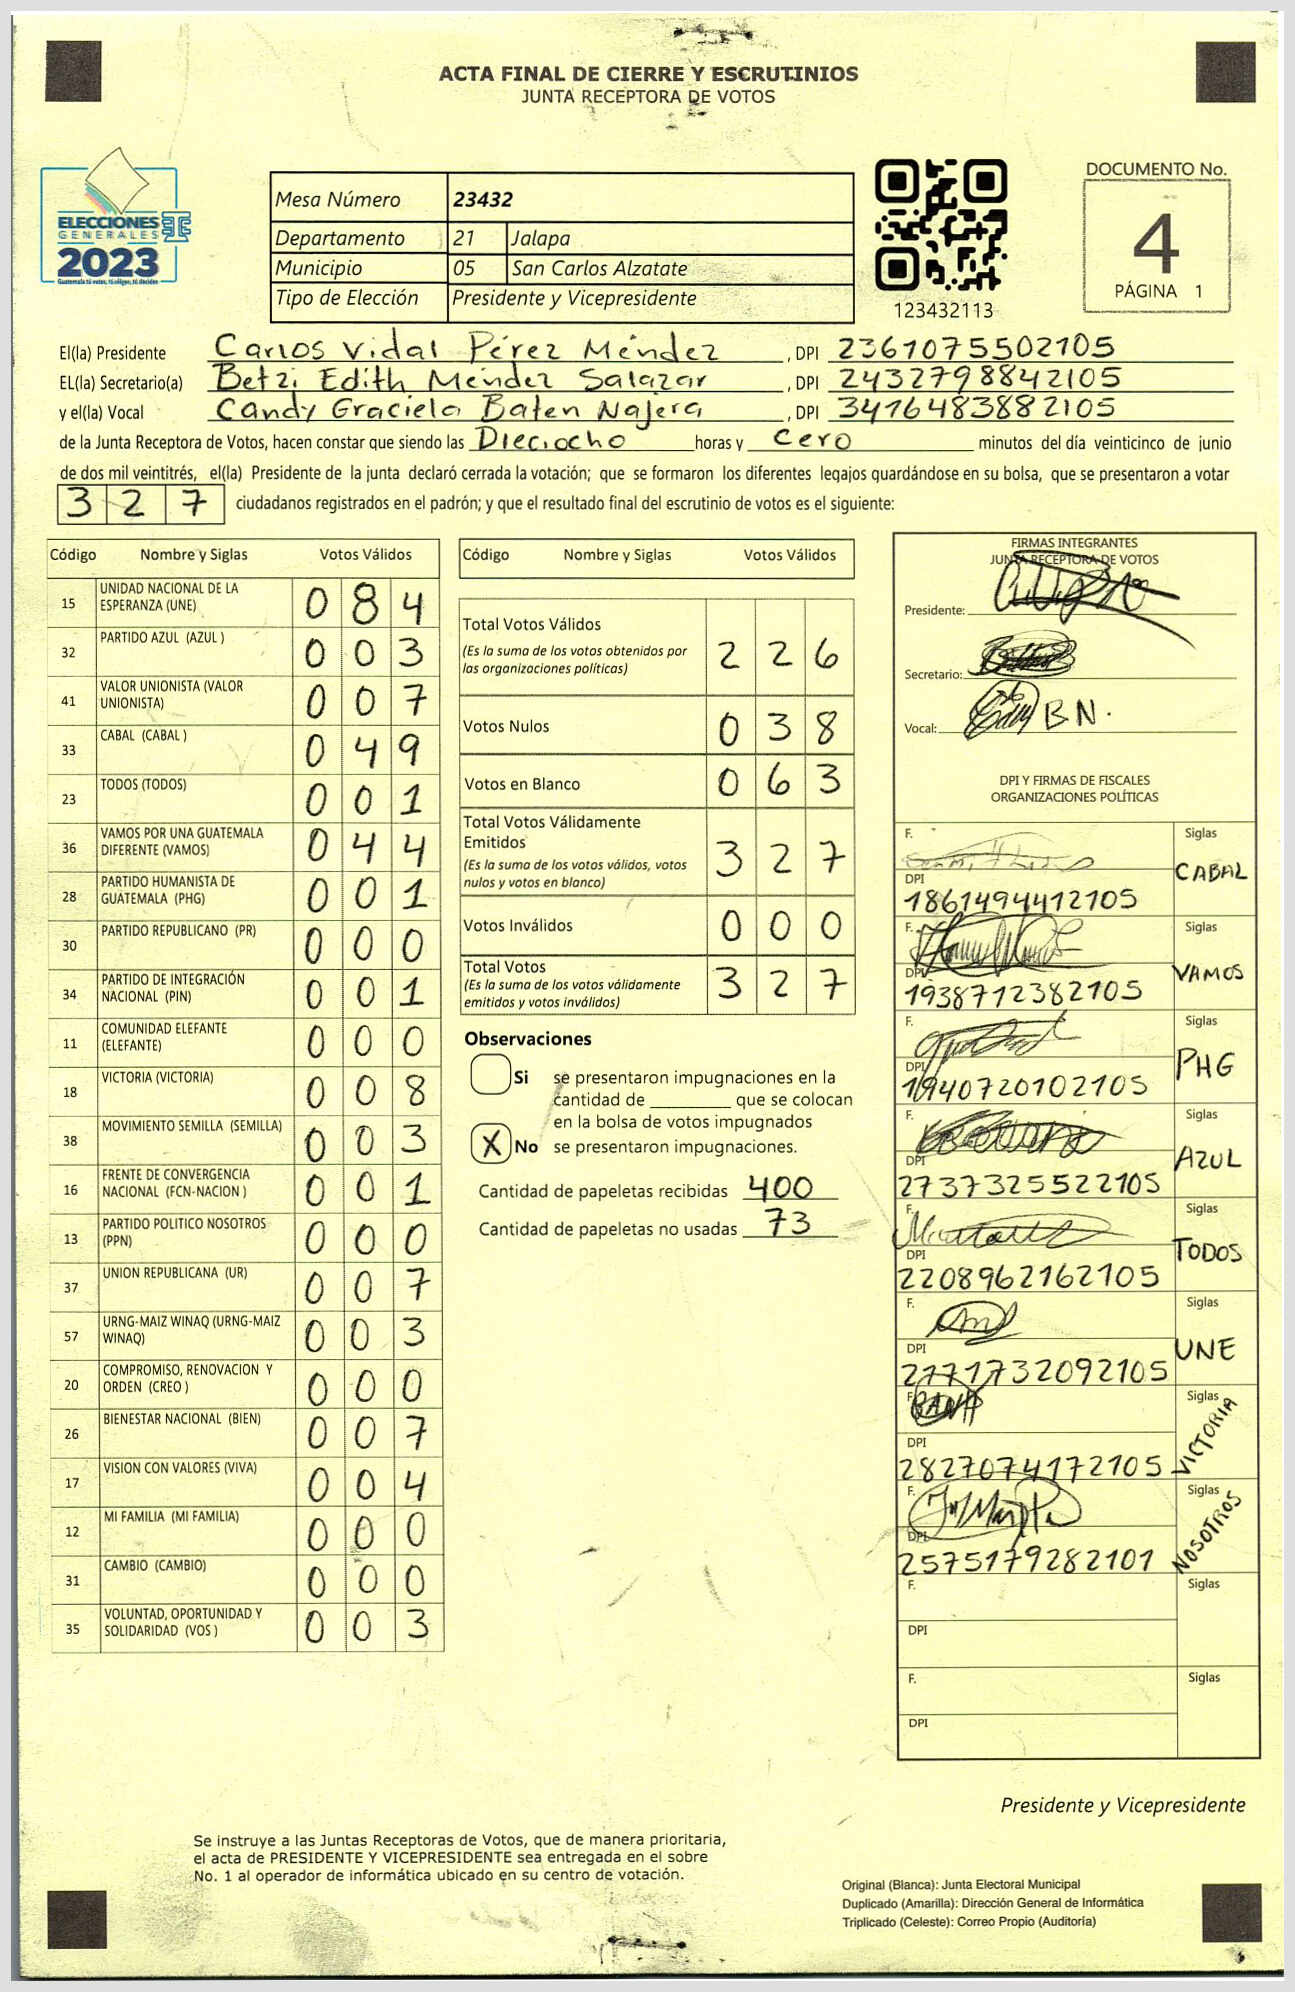 ACTA FINAL DE CIERRE Y ESCRUTINIOS
JUNTA RECEPTORA DE VOTOS
ELECCIONES
GENERALES
2023
Guatemala tú votas, tú eliges, tú decides
Mesa Número 23432
Departamento 21 Jalapa
Municipio 05 San Carlos Alzatate
Tipo de Elección Presidente y Vicepresidente
123432113
DOCUMENTO No.
4
PÁGINA 1
El(la) Presidente Carlos Vidal Pérez Méndez , DPI 2361075502105
EL(la) Secretario(a) Betzi Edith Méndez Salazar , DPI 2432798842105
y el(la) Vocal Candy Graciela Baten Najera , DPI 3416483882105
de la Junta Receptora de Votos, hacen constar que siendo las Dieciocho horas y cero minutos del día veinticinco de junio
de dos mil veintitrés, el(la) Presidente de la junta declaró cerrada la votación; que se formaron los diferentes legajos quardándose en su bolsa, que se presentaron a votar
327 ciudadanos registrados en el padrón; y que el resultado final del escrutinio de votos es el siguiente:
Código Nombre y Siglas Votos Válidos
15 UNIDAD NACIONAL DE LA ESPERANZA (UNE) 084
32 PARTIDO AZUL (AZUL ) 003
41 VALOR UNIONISTA (VALOR UNIONISTA) 007
33 CABAL (CABAL ) 049
23 TODOS (TODOS) 001
36 VAMOS POR UNA GUATEMALA DIFERENTE (VAMOS) 044
28 PARTIDO HUMANISTA DE GUATEMALA (PHG) 001
30 PARTIDO REPUBLICANO (PR) 000
34 PARTIDO DE INTEGRACIÓN NACIONAL (PIN) 001
11 COMUNIDAD ELEFANTE (ELEFANTE) 000
18 VICTORIA (VICTORIA) 008
38 MOVIMIENTO SEMILLA (SEMILLA) 003
16 FRENTE DE CONVERGENCIA NACIONAL (FCN-NACION ) 001
13 PARTIDO POLITICO NOSOTROS (PPN) 000
37 UNION REPUBLICANA (UR) 007
57 URNG-MAIZ WINAQ (URNG-MAIZ WINAQ) 003
20 COMPROMISO, RENOVACION Y ORDEN (CREO ) 000
26 BIENESTAR NACIONAL (BIEN) 007
17 VISION CON VALORES (VIVA) 004
12 MI FAMILIA (MI FAMILIA) 000
31 CAMBIO (CAMBIO) 000
35 VOLUNTAD, OPORTUNIDAD Y SOLIDARIDAD (VOS ) 003
Código Nombre y Siglas Votos Válidos
Total Votos Válidos 226
(Es la suma de los votos obtenidos por
las organizaciones políticas)
Votos Nulos 038
Votos en Blanco 063
Total Votos Válidamente
Emitidos 327
(Es la suma de los votos válidos, votos
nulos y votos en blanco)
Votos Inválidos 000
Total Votos 327
(Es la suma de los votos válidamente
emitidos y votos inválidos)
Observaciones
Si se presentaron impugnaciones en la
cantidad de que se colocan
en la bolsa de votos impugnados
X No se presentaron impugnaciones.
Cantidad de papeletas recibidas 400
Cantidad de papeletas no usadas 73
FIRMAS INTEGRANTES
JUNTA RECEPTORA DE VOTOS
Presidente:
Secretario:
Vocal: BN.
DPI Y FIRMAS DE FISCALES
ORGANIZACIONES POLÍTICAS
F. Siglas
CABAL
DPI
1861494412105
F. Siglas
VAMOS
DPI
1938712382105
F. Siglas
PHG
DPI
1940720102105
F. Siglas
AZUL
DPI
2737325522105
F. Siglas
TODOS
DPI
2208962162105
F. Siglas
UNE
DPI
2771732092105
F. Siglas
VICTORIA
DPI
2827074172105
F. Siglas
NOSOTROS
DPI
2575179282101
F. Siglas
DPI
F. Siglas
DPI
Presidente y Vicepresidente
Se instruye a las Juntas Receptoras de Votos, que de manera prioritaria,
el acta de PRESIDENTE Y VICEPRESIDENTE sea entregada en el sobre
No. 1 al operador de informática ubicado en su centro de votación.
Original (Blanca): Junta Electoral Municipal
Duplicado (Amarilla): Dirección General de Informática
Triplicado (Celeste): Correo Propio (Auditoría)